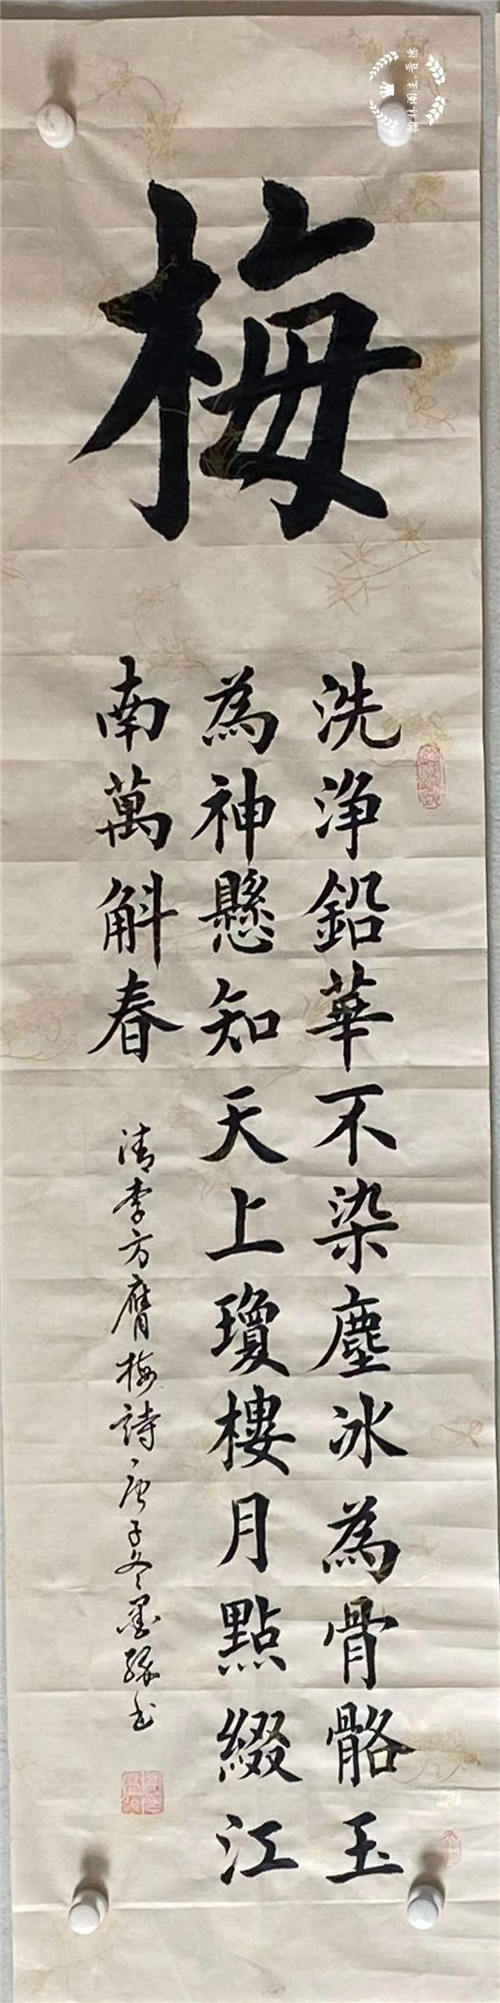 梅
洗淨鉛華不染塵冰為骨骼玉
為神懸知天上瓊樓月點綴江
南萬斛春
清李方膺梅詩庚子冬墨缘书